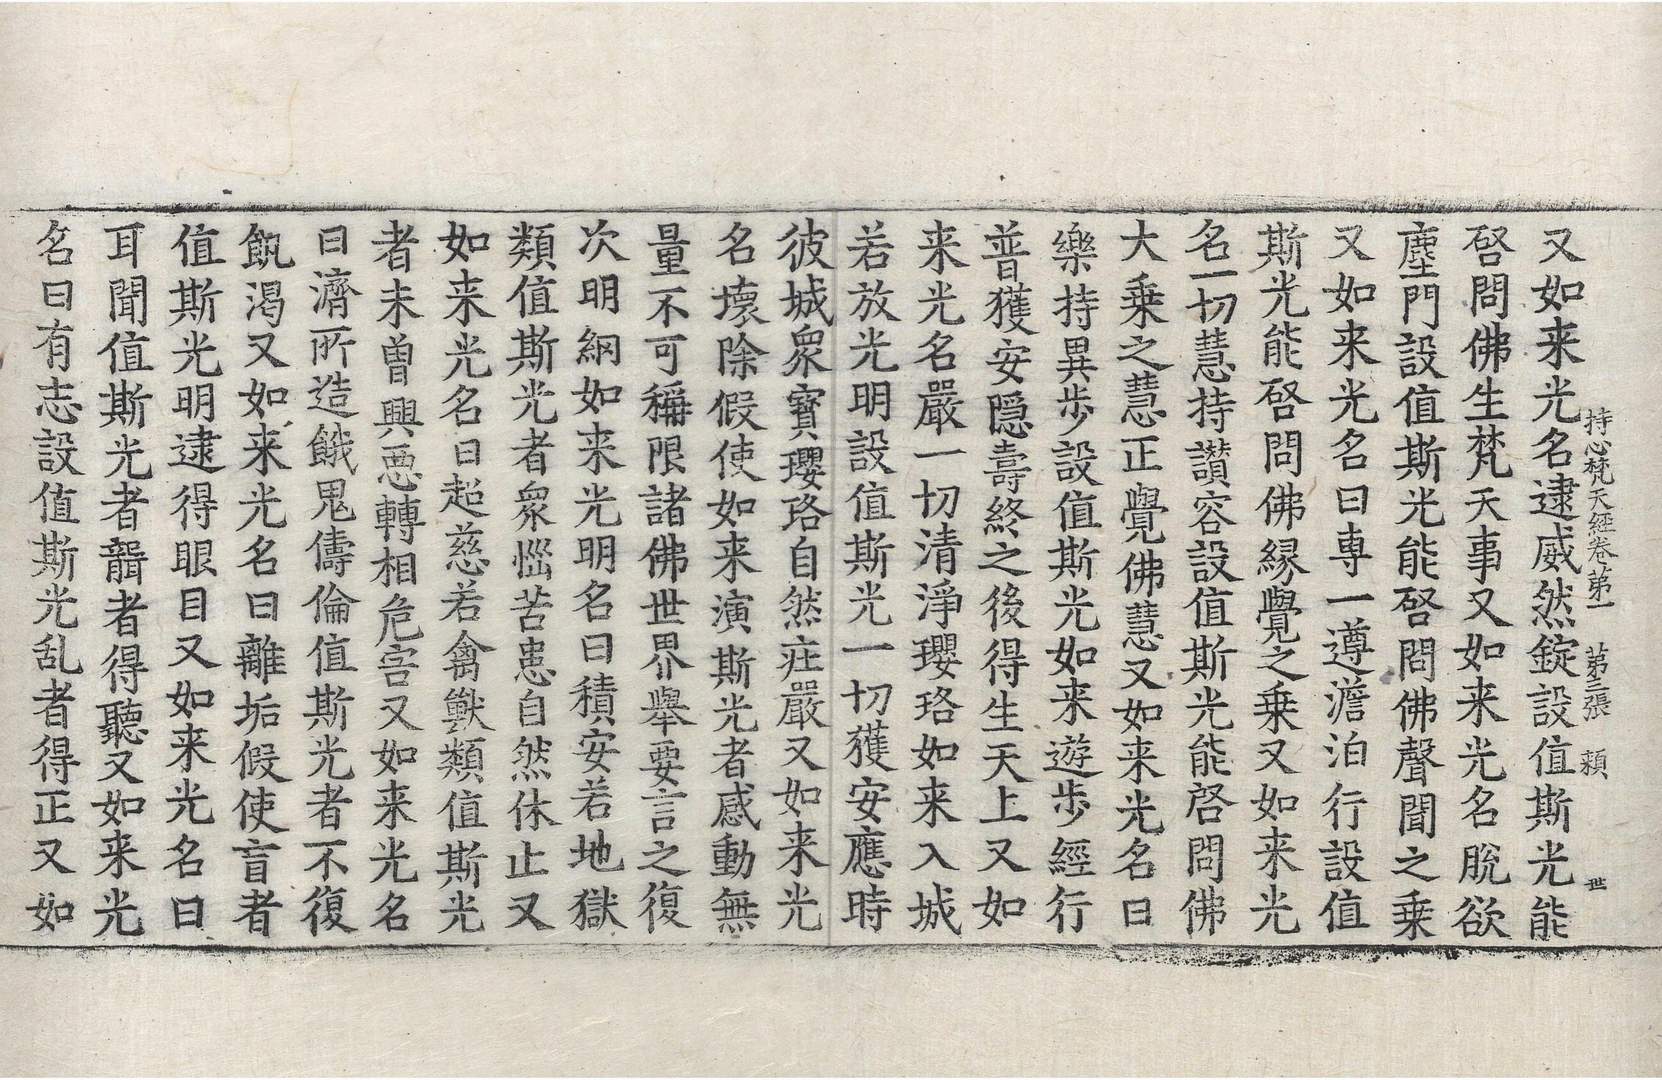 持心梵天經卷第一　第三張　頪　世
又如来光名逮威然錠設值斯光能
啓問佛生梵天事又如来光名脫欲
塵門設值斯光能啓問佛聲聞之乗
又如来光名曰專一遵澹泊行設值
斯光能啓問佛緣覺之乗又如来光
名一切慧持讃容設值斯光能啓問佛
大乗之慧正覺佛慧又如来光名曰
樂持異步設值斯光如来遊步經行
普獲安隱壽終之後得生天上又如
来光名嚴一切清淨瓔珞如来入城
若放光明設值斯光一切獲安應時
彼城衆寶瓔珞自然庄嚴又如来光
名壞除假使如来演斯光者感動無
量不可稱限諸佛世界舉要言之復
次明網如来光明名曰積安若地獄
類值斯光者衆惱苦患自然休止又
如来光名曰超慈若禽獸類值斯光
者未曾興惡轉相危害又如来光名
曰濟所造餓鬼儔倫值斯光者不復
飢渴又如来光名曰離垢假使盲者
值斯光明逮得眼目又如来光名曰
耳聞值斯光者聾者得聽又如来光
名曰有志設值斯光乱者得正又如